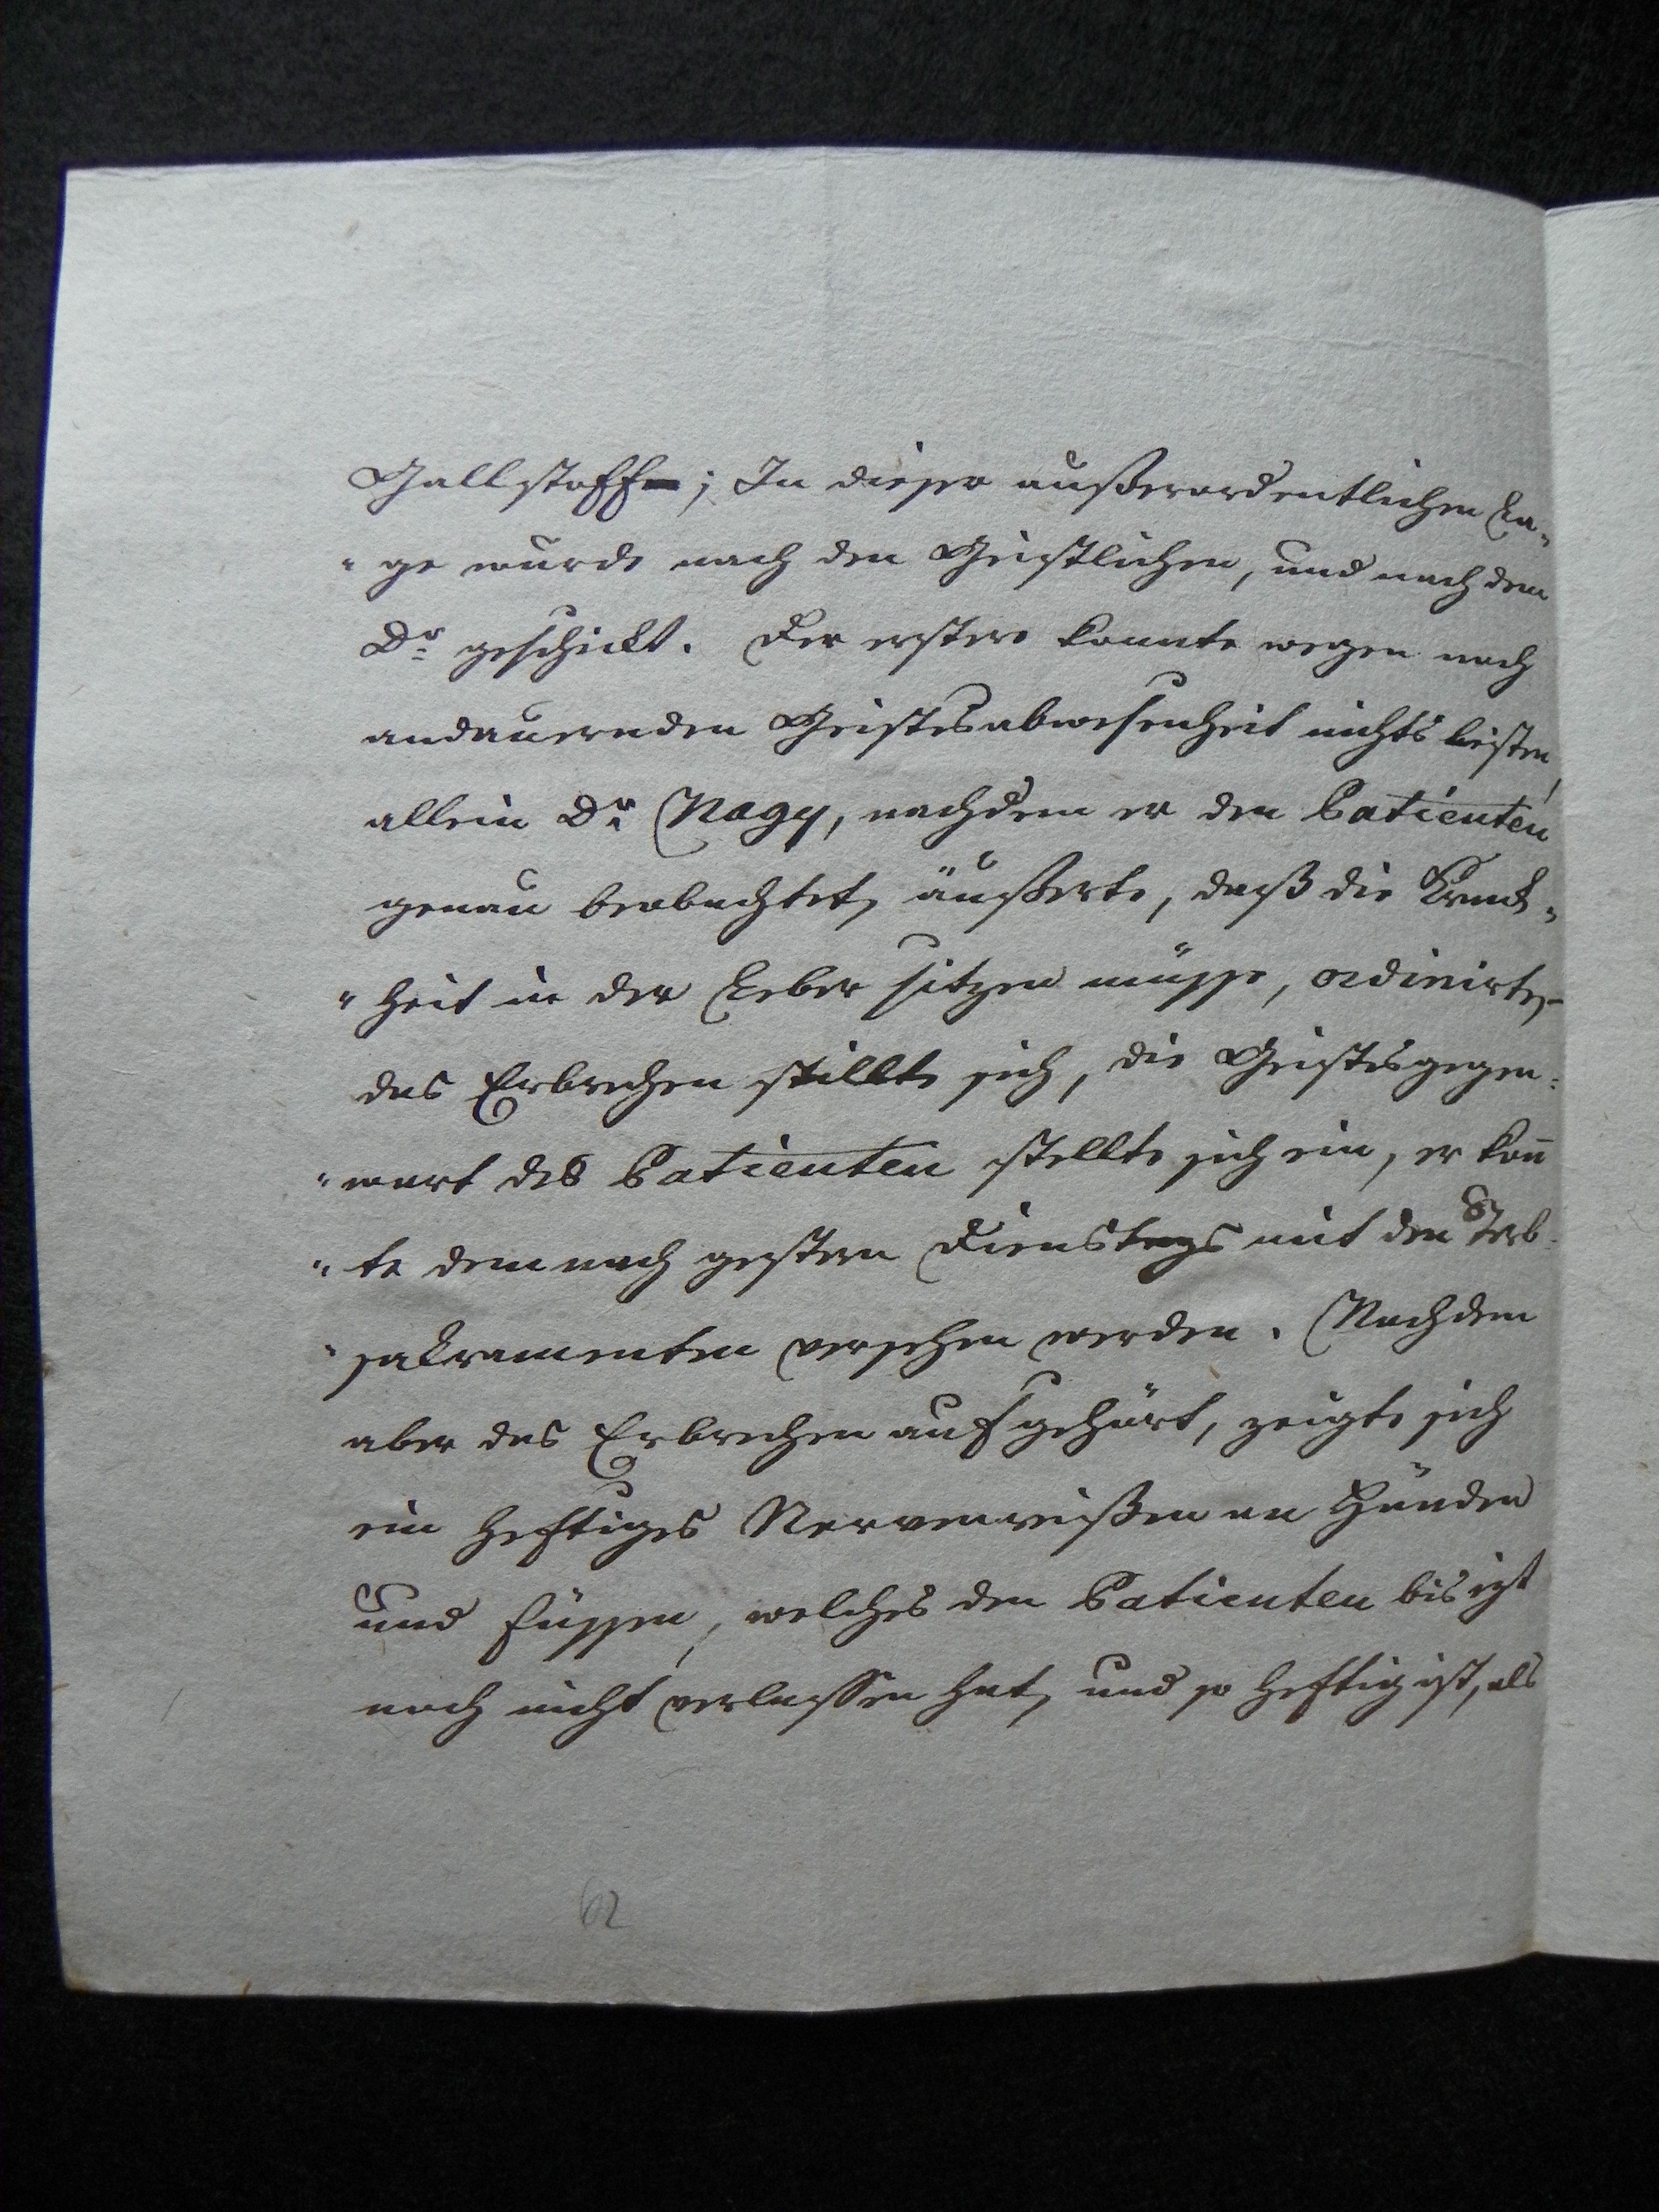 Gallstoff; In dieser außerordentlichen La-
"ge wurde nach den Geistlichen, und nach dem
Dr geschickt. Der erstere konnte wegen noch
andauernden Geistesabwesenheit nichts leisten,
allein Dr Nagy, nachdem er den Patienten
genau beobachtet, äußerte, daß die Krank-
"heit in der Leber sitzen müsse, ordinirte,
das Erbrechen stillte sich, die Geistesgegen=
"wart des Patienten stellte sich ein, er kon̄
"te demnach gestern Dienstags mit den Sterb-
"sakramenten versehen werden. Nachdem
aber das Erbrechen aufgehört, zeigte sich
ein heftiges Nervenreißen an Händen
und Füssen, welches den Patienten bis izt
noch nicht verlassen hat, und so heftig ist, als
62